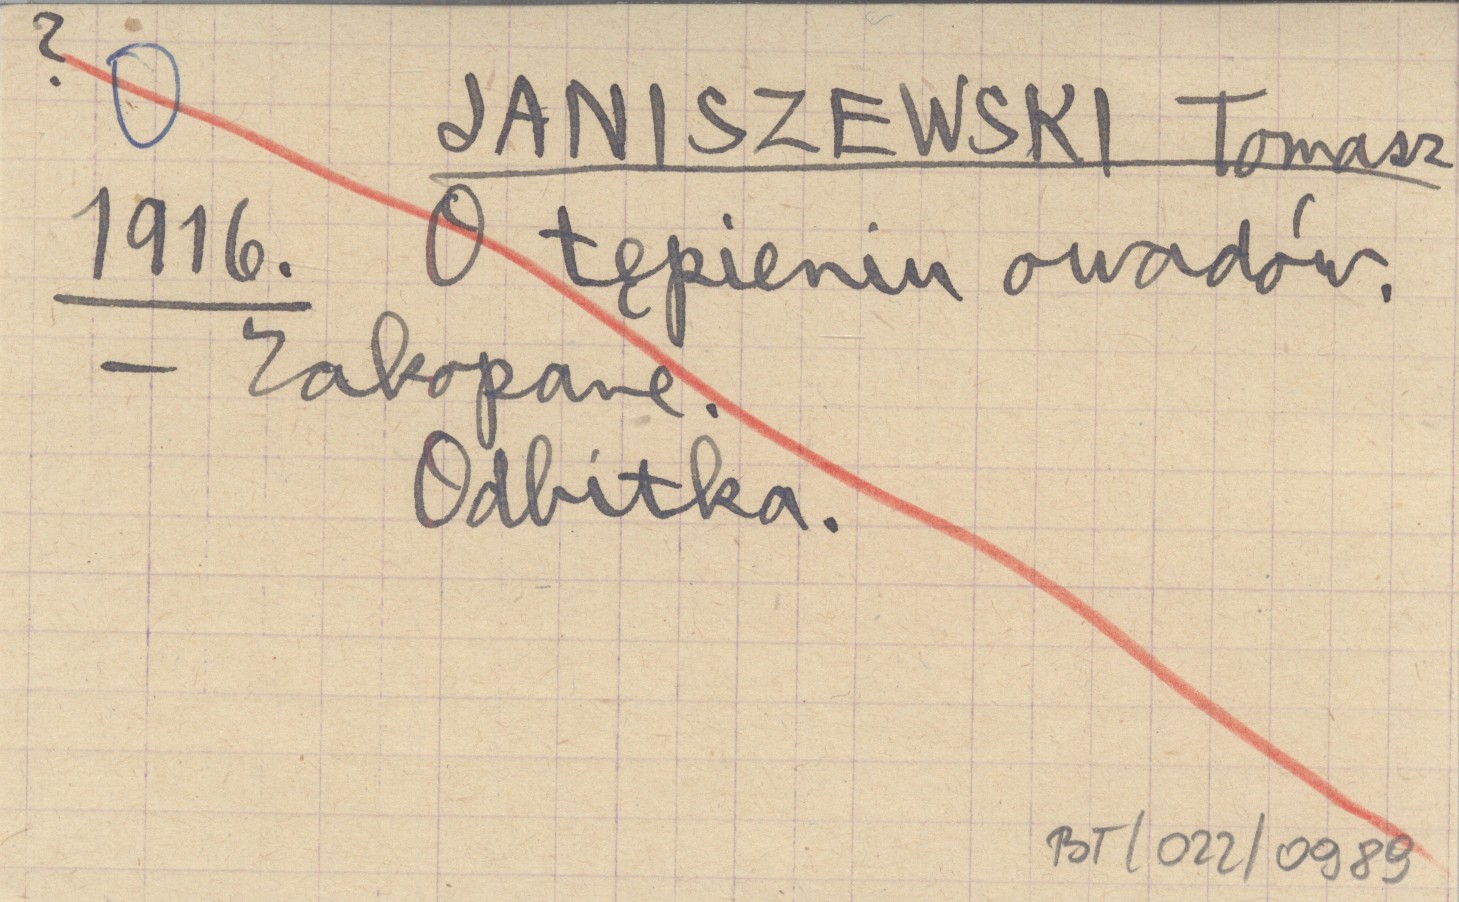 ?
JANISZEWSKI Tomasz
1916. O tępieniu owadów.
– Zakopane.
Odbitka.
BT/022/0989